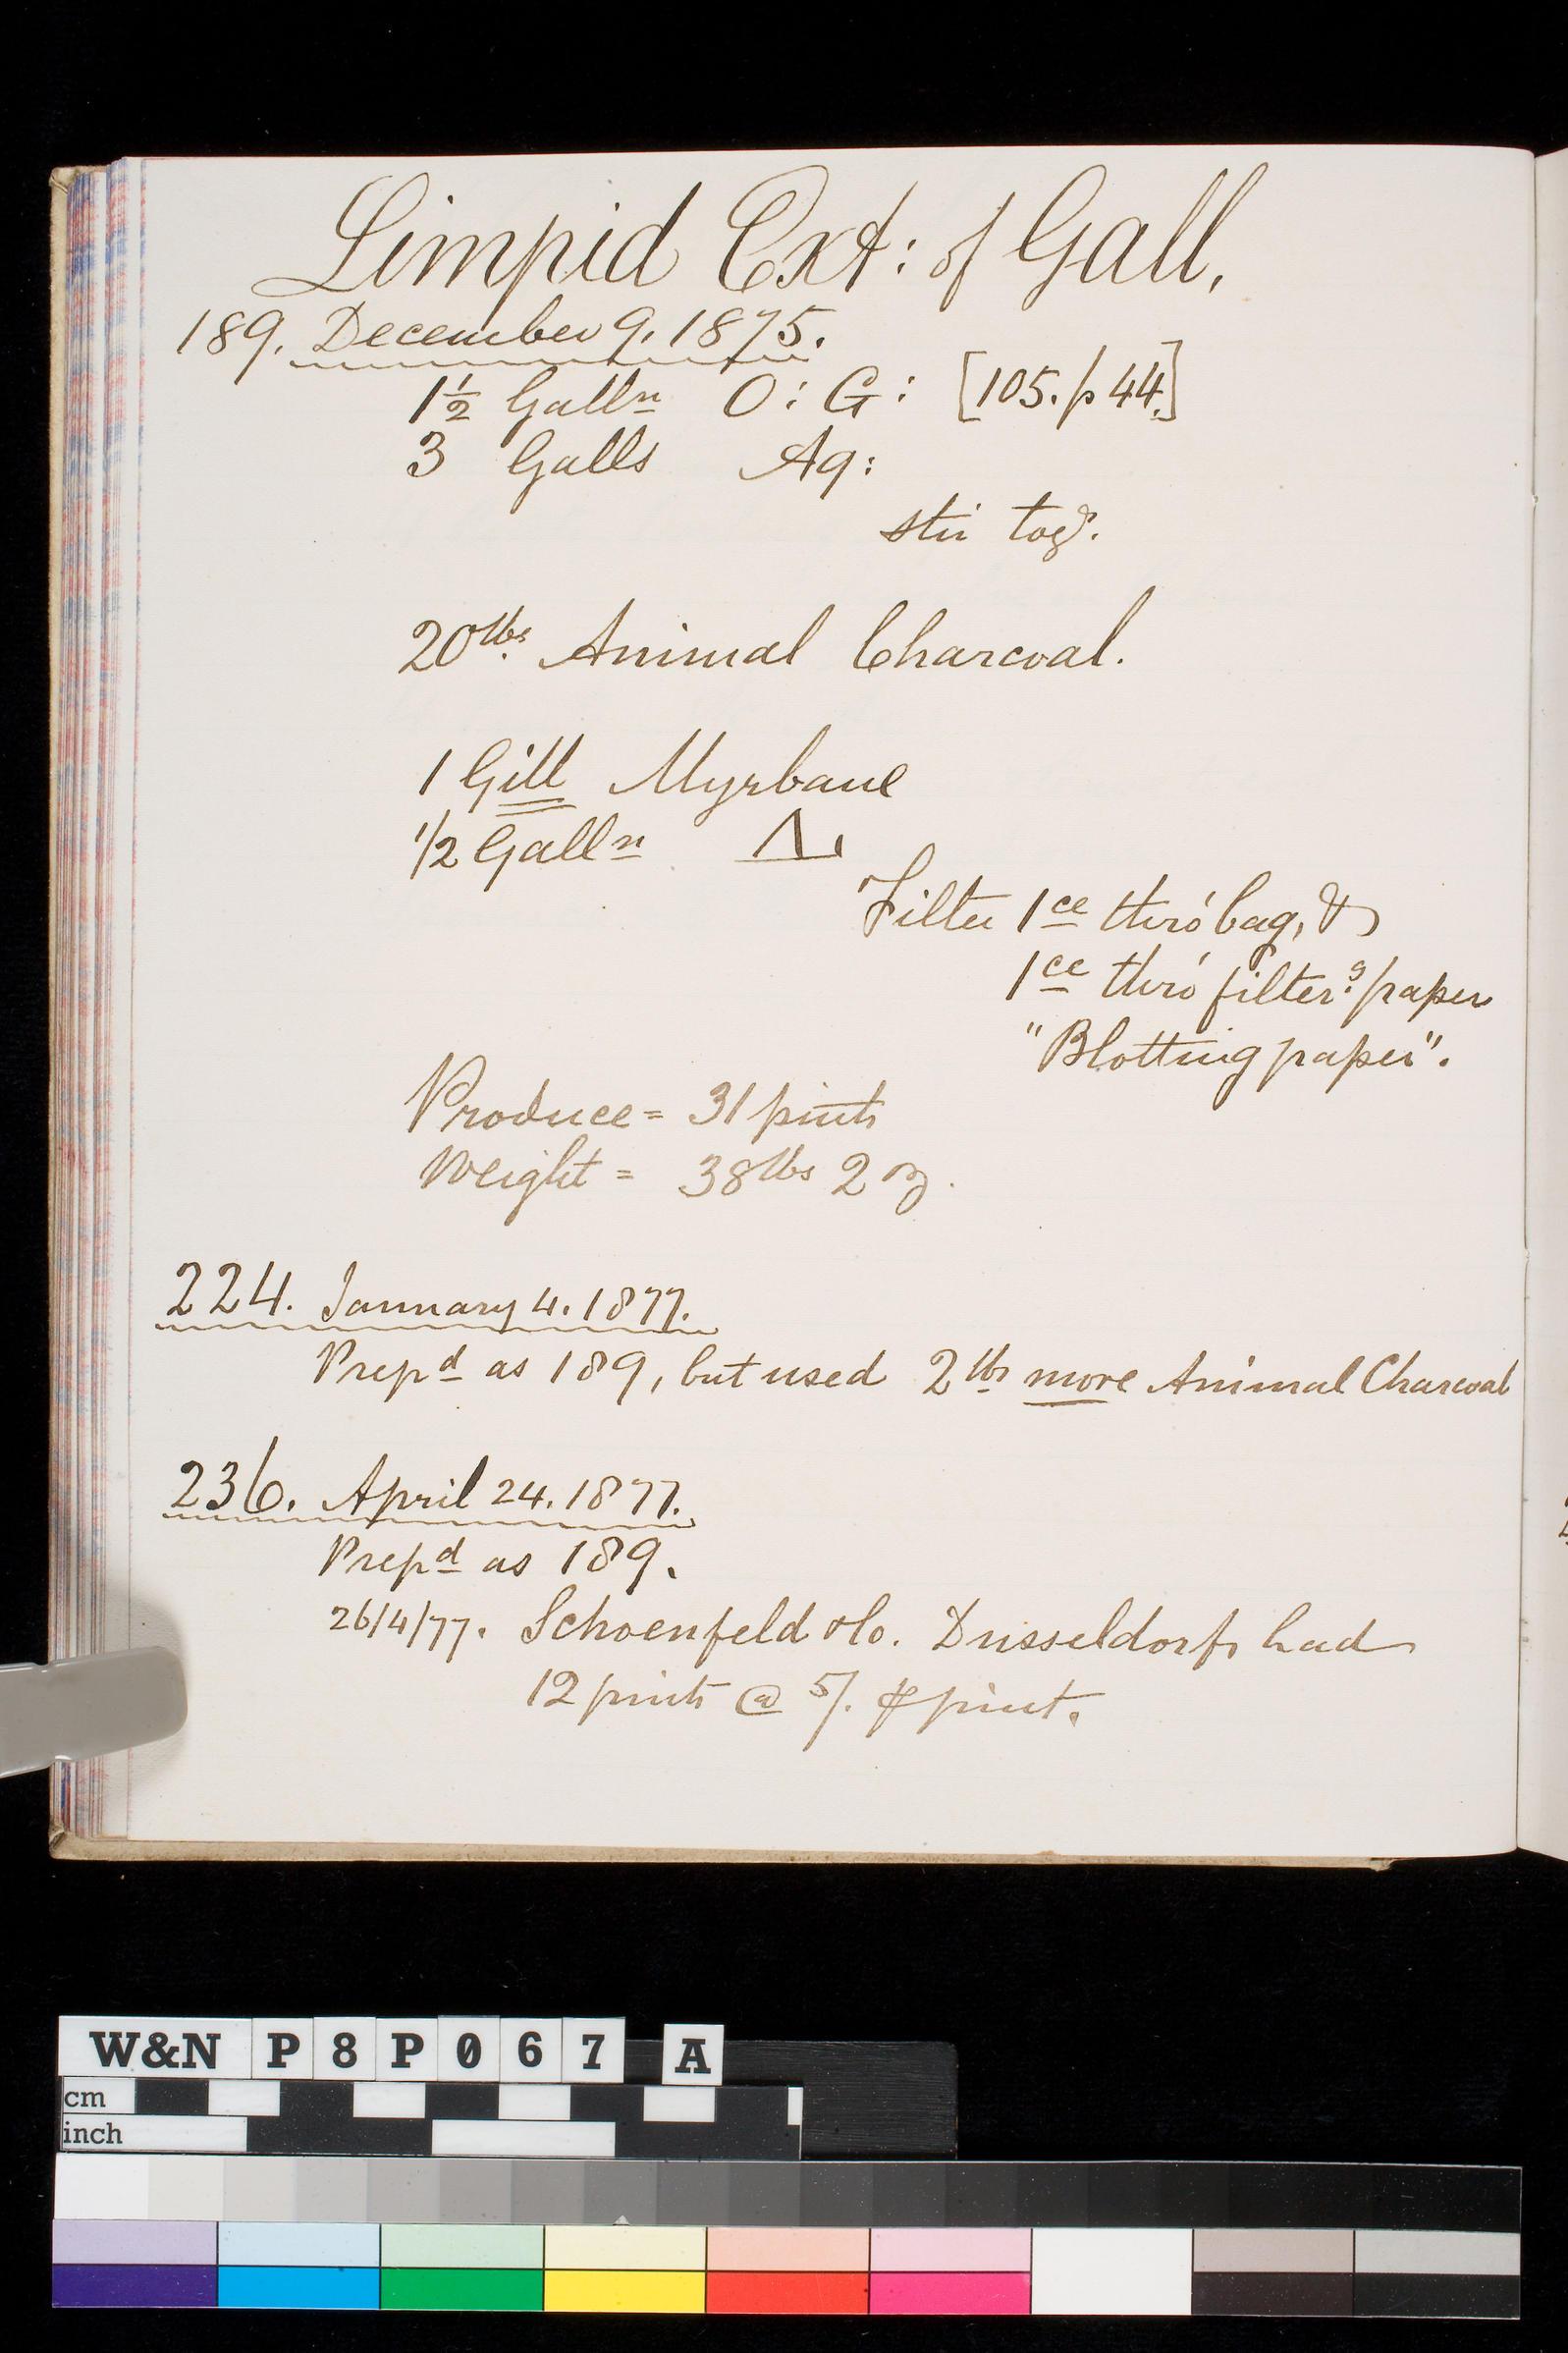 Limpid Ext: of Gall,
189. December 9. 1875.
1½ Gallⁿ O: G: [105. p 44.]
3 Galls Aq:
stir togʳ.
20 lbs. Animal Charcoal.
1 Gill Myrbane
1/2 Gallⁿ
Filter 1ce thro' bag, &
1ce thro' filter.g paper
"Blotting paper".
Produce = 31 pints
Weight = 38 lbs 2 oz.
224. January 4. 1877.
Prepd as 189, but used 2 lbs more Animal Charcoal
236. April 24. 1877.
Prepd as 189.
26/4/77. Schoenfeld & Co. Dusseldorf, had
12 pints @ 5/. ⅌ pint.
W&N P8P067 A
cm
inch